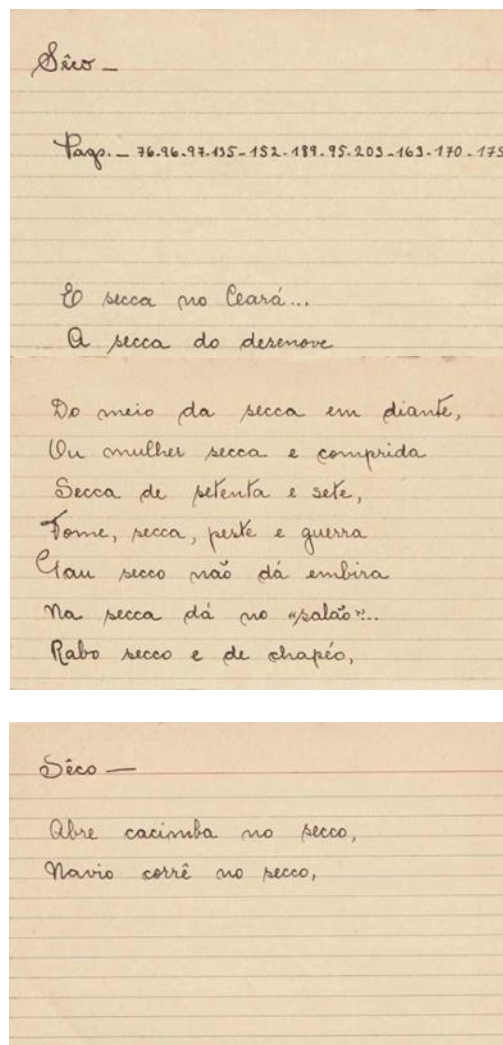 Sêco —
Pags. — 76.96.97.135-152.189.95.203-163.170.175
E secca no Ceará...
A secca do desenove
Do meio da secca em diante,
Ou mulher secca e comprida
Secca de setenta e sete,
Fome, secca, peste e guerra
Páu secco não dá embira
Na secca dá no «salão»...
Rabo secco e de chapéo,
Sêco —
Abre cacimba no secco,
Navio corrê no secco,